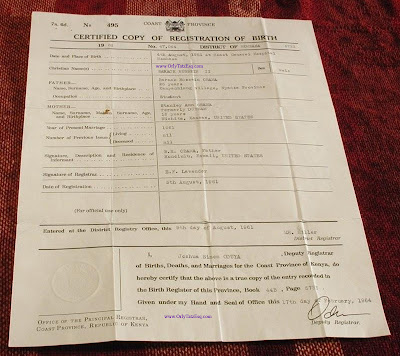 7s. 6d. No 495 COAST PROVINCE
CERTIFIED COPY OF REGISTRATION OF BIRTH
No. 47,044 DISTRICT OF
Date and Place of Birth 4th August, 1961 at Coast General Hospital
www.OrlyTaitzEsq.com
Christian Name(s) BARACK HUSSEIN II Sex Male
FATHER— Barack Hussein OBAMA
Name, Surname, Age, and Birthplace 26 years
Village, Nyanza Province
Occupation Student
MOTHER— Stanley Ann OBAMA
Name, Surname, Maiden Surname, Age, formerly DUNHAM
and Birthplace 18 years
Wichita, Kansas, UNITED STATES
Year of Present Marriage 1961
Number of Previous Issue Living nil
Deceased nil
Signature, Description and Residence of B.H. OBAMA, Father
Informant Honolulu, Hawaii, UNITED STATES
Signature of Registrar E.F. Lavender
Date of Registration 5th August, 1961
(For official use only)
Entered at the District Registry Office, this 8th day of August, 1961
www.OrlyTaitzEsq.com
Miller
District Registrar
I, Joshua Simon ODUYA, Deputy Registrar
of Births, Deaths, and Marriages for the Coast Province of Kenya, do
hereby certify that the above is a true copy of the entry recorded in
the Birth Register of this Province, Book 44B, Page 5733
Given under my Hand and Seal of Office this 17th day of February, 1964
www.OrlyTaitzEsq.com
Deputy Registrar.
OFFICE OF THE PRINCIPAL REGISTRAR,
COAST PROVINCE, REPUBLIC OF KENYA